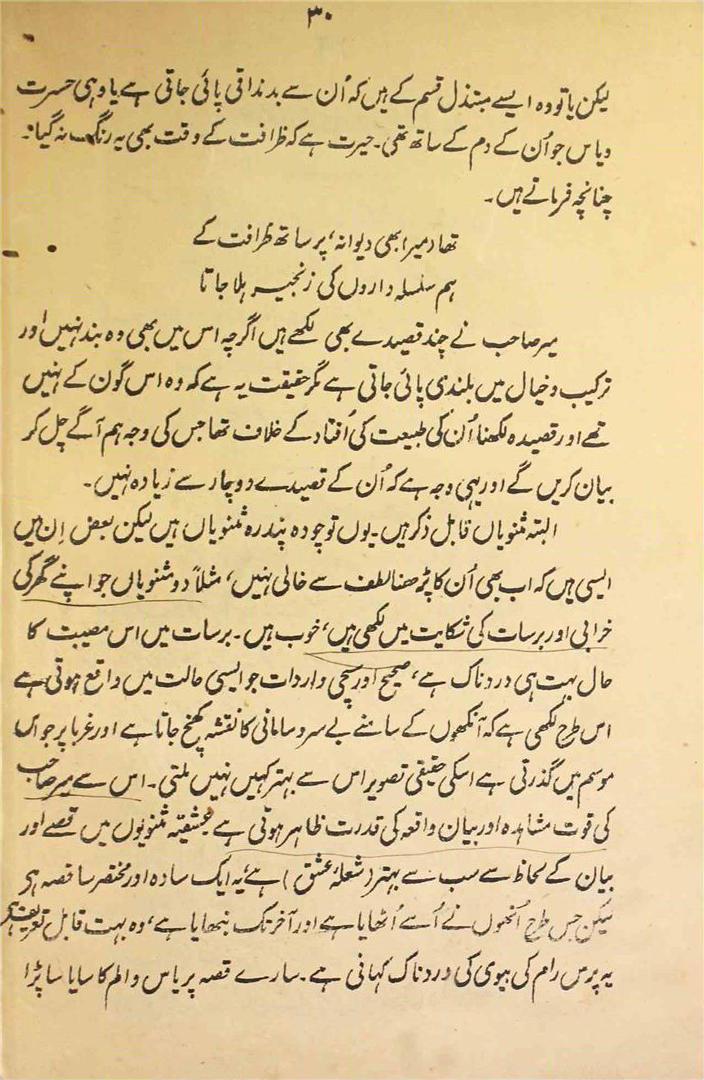 ۳۰
لیکن یا تو وہ ایسے مبتذل قسم کے ہیں کہ اُن سے بد مذاقی پائی جاتی ہے یا وہی حسرت
ویاس جو اُن کے دم کے ساتھ تھی۔ حیرت ہے کہ ظرافت کے وقت بھی یہ رنگ نہ گیا۔
چنانچہ فرماتے ہیں۔
تھا میر ابھی دیوانہ، پر ساتھ ظرافت کے
ہم سلسلہ داروں کی زنجیر ہلا جاتا
میر صاحب نے چند قصیدے بھی لکھے ہیں اگرچہ اس میں بھی وہ بند نہیں اور
ترکیب و خیال میں بلندی پائی جاتی ہے مگر حقیقت یہ ہے کہ وہ اس گون کے نہیں
تھے اور قصیدہ لکھنا اُن کی طبیعت کی اُفتاد کے خلاف تھا جس کی وجہ ہم آگے چل کر
بیان کریں گے اور یہی وجہ ہے کہ اُن کے قصیدے دو چار سے زیادہ نہیں۔
البتہ مثنویاں قابل ذکر ہیں۔ یوں تو چودہ پندرہ مثنویاں ہیں لیکن بعض اِن میں
ایسی ہیں کہ اب بھی اُن کا پڑھنا لطف سے خالی نہیں، مثلاً دو مثنویاں جو اپنے گھر کی
خرابی اور برسات کی شکایت میں لکھی ہیں، خوب ہیں۔ برسات میں اس مصیبت کا
حال بہت ہی دردناک ہے، صحیح اور سچی واردات جو ایسی حالت میں واقع ہوتی ہے
اس طرح لکھی ہے کہ آنکھوں کے سامنے بے سروسامانی کا نقشہ کھنچ جاتا ہے اور غربا پر جو اس
موسم میں گذرتی ہے اسکی حقیقی تصویر اس سے بہتر کہیں نہیں ملتی۔ اس سے میر صاحب
کی قوت مشاہدہ اور بیان واقعہ کی قدرت ظاہر ہوتی ہے عشقیہ مثنویوں میں قصے اور
بیان کے لحاظ سے سب سے بہتر (شعلۂ عشق) ہے یہ ایک سادہ اور مختصر سا قصہ ہی
لیکن جس طرح اُنھوں نے اُسے اُٹھایا ہے اور آخر تک نبھایا ہے، وہ بہت قابل تعریف ہی
یہ پرس رام کی بیوی کی دردناک کہانی ہے۔ سارے قصہ پر یاس و الم کا سایا سا پڑا